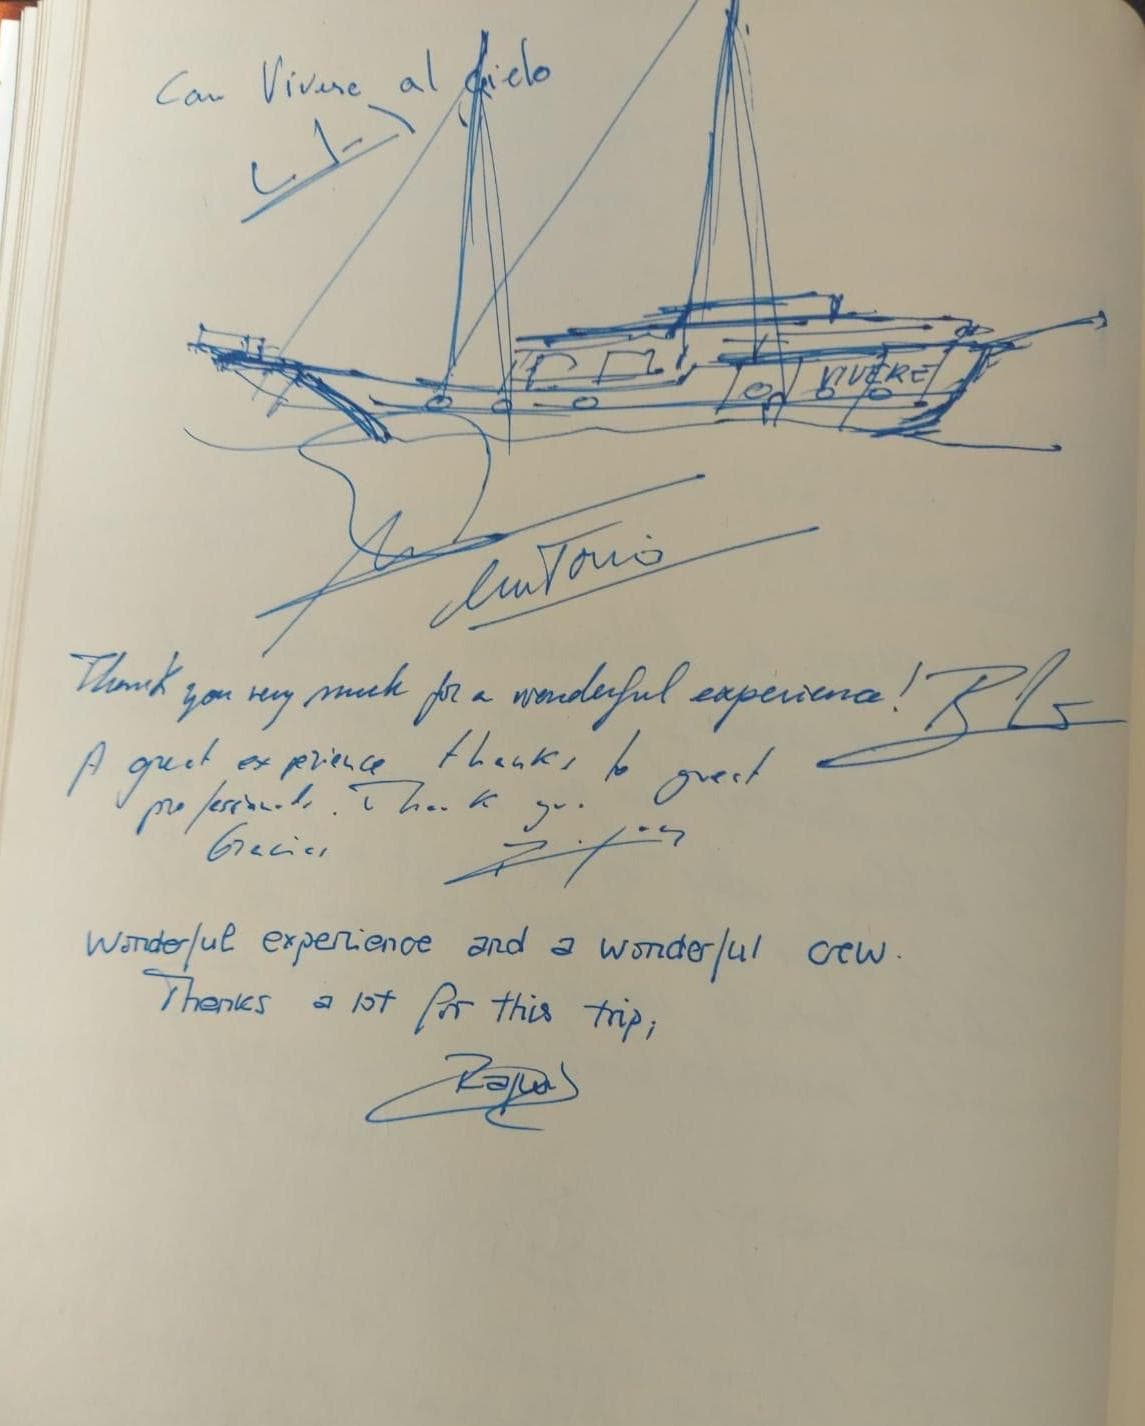 Con Vivere al Cielo
VIVERE
Antonio
Thank you very much for a wonderful experience!
A great experience thanks to great
professionals. Thank you.
Gracias
Wonderful experience and a wonderful crew.
Thanks a lot for this trip;